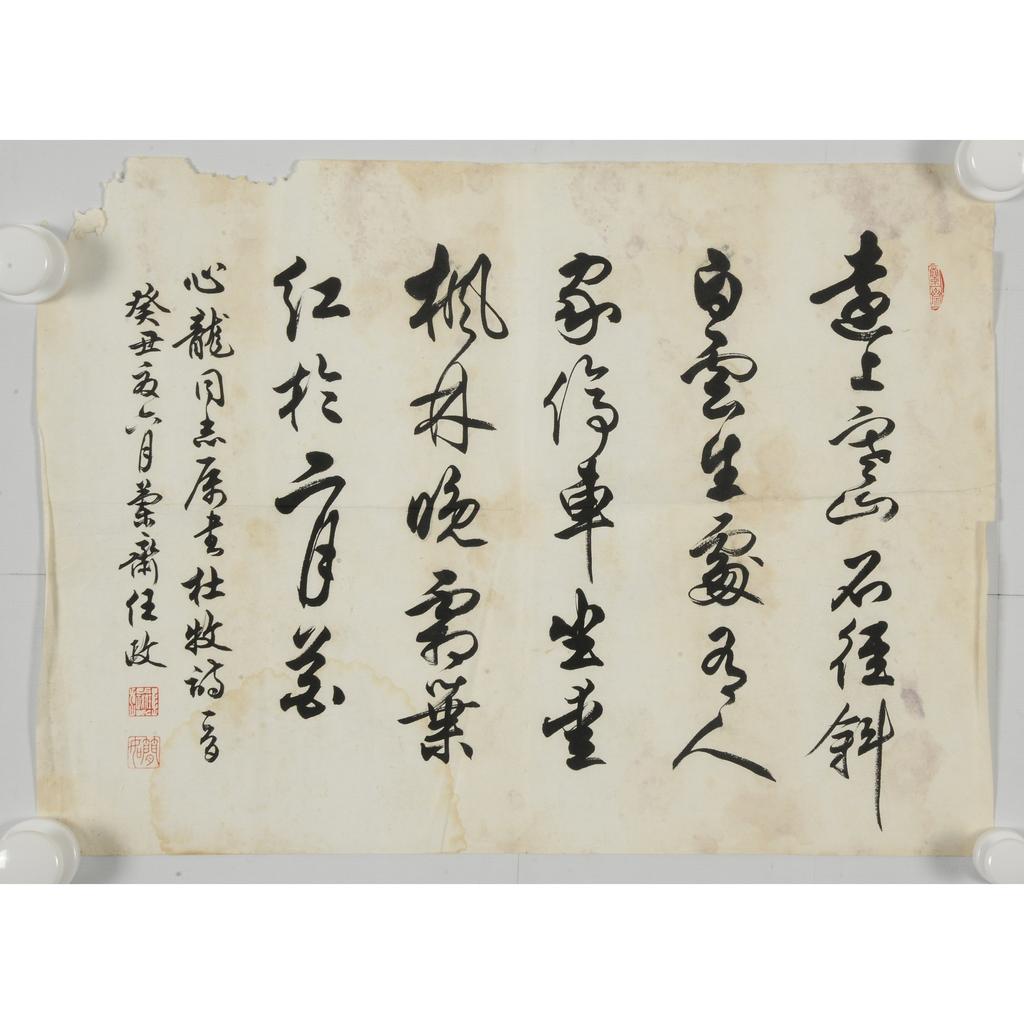 遠上寒山石徑斜
白雲生處有人
家停車坐愛
楓林晚霜葉
紅於二月花
心龍同志属書杜牧詩一首
癸丑夏六月蘭齋任政